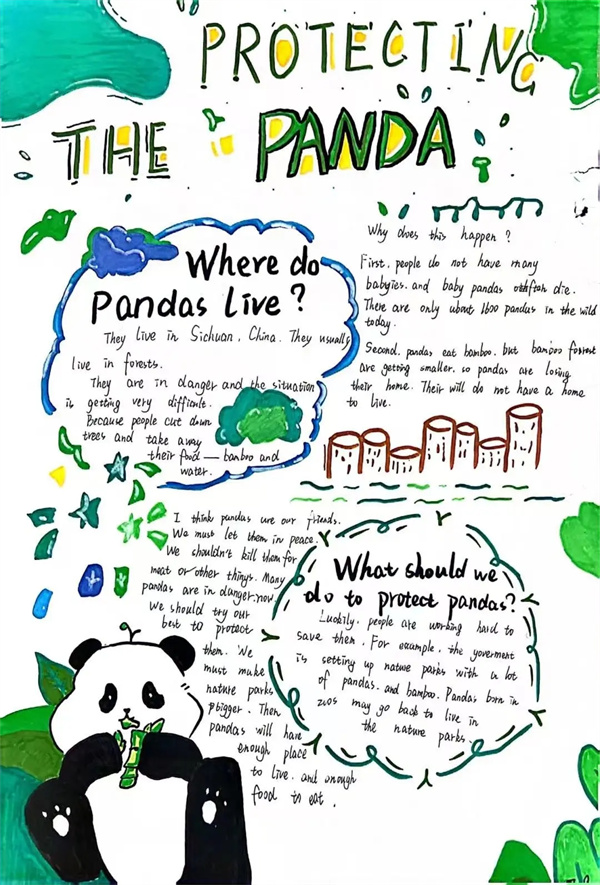 PROTECTING
THE PANDA
Where do
Pandas Live?
They live in Sichuan, China. They usually
live in forests.
They are in danger and the situation
is getting very difficulte.
Because people cut down
trees and take away
their food — banbro and
water.
Why does this happen?
First, people do not have many
babyies. and baby pandas die.
There are only about 1600 pandas in the wild
today.
Second. pandas eat bamboo. but bamboo forrest
are getting smaller. so pandas are losing
their home. Their will do not have a home
to live.
I think pandas are our friends.
We must let them in peace.
We shouldn't kill them for
meat or other things. Many
pandas are in danger. now
We should try our
best to protect
them. We
must make
nature parks
bigger. Then
pandas will have
enough place
to live. and enough
food to eat.
What should we
do to protect pandas?
Luckily. people are working hard to
save them. For example. the goverment
is setting up nature parks with a lot
of pandas. and bamboo. Pandas born in
zoos may go back to live in
the nature parks.